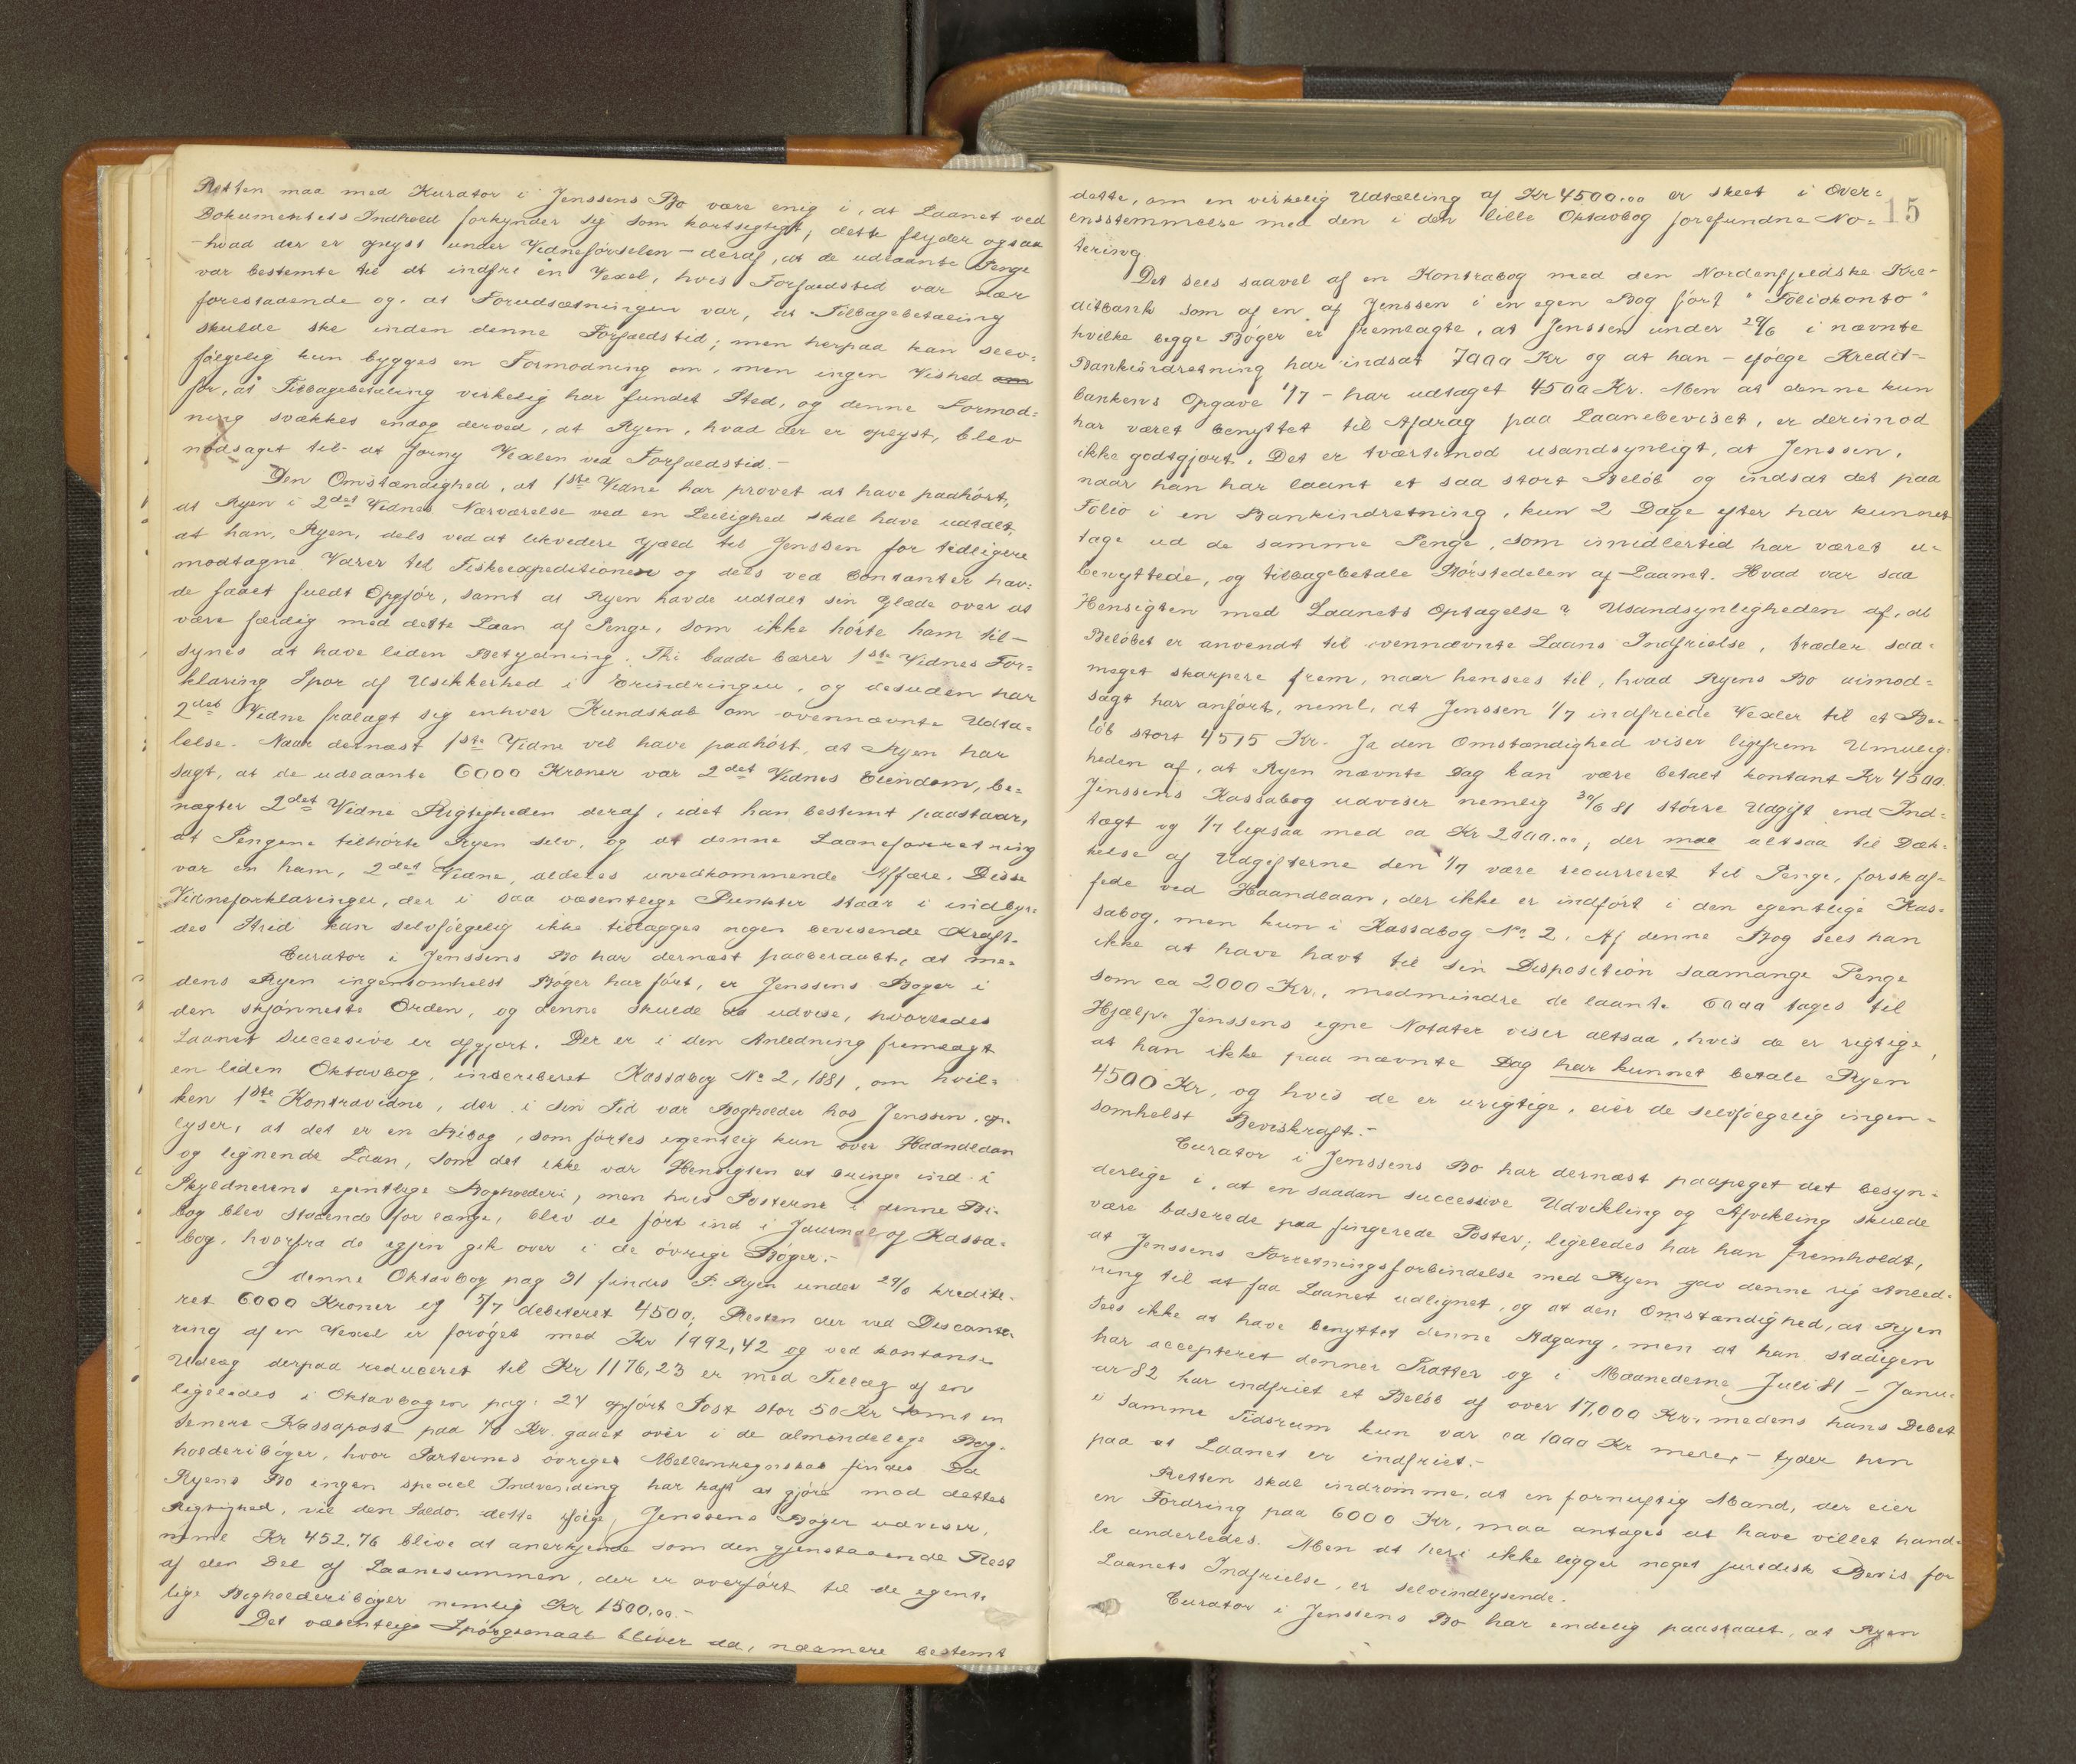 Retten maa med Kurator i Jenssens Bo være enig i, at Laanet ved
Dokumentets Indhold forkynder sig som kortsigtigt; dette flyder ogsaa
- hvad der er oplyst under Vidneførselen - deraf, at de udlaante Penge
var bestemte til at indfri en Vexel, hvis Forfaldstid var nær
forestaaende og, at Forudsætningen var, at Tilbagebetaling
skulde ske inden denne Forfaldstid; men herpaa kan selv-
følgelig kun bygges en Formodning om, men ingen Vished om
for, at Tilbagebetaling virkelig har fundet Sted, og denne Formod-
ning svækkes endog derved, at Ryen, hvad der er oplyst, blev
nødsaget til at forny Vexlen ved Forfaldstid.-
Den Omstændighed, at 1ste Vidne har provet at have paahørt,
at Ryen i 2det Vidnes Nærværelse ved en Leilighed skal have udtalt,
at han, Ryen, dels ved at likvidere Gjæld til Jenssen for tidligere
modtagne Varer til Fiskeexpeditionen og dels ved Contanter hav-
de faaet fuldt Opgjør, samt at Ryen havde udtalt sin Glæde over at
være færdig med dette Laan af Penge, som ikke hørte ham til -
synes at have liden Betydning. Thi baade bærer 1ste Vidnes For-
klaring Spor af Usikkerhed i Erindringen, og desuden har
2det Vidne fralagt sig enhver Kundskab om ovennævnte Udta-
lelse. Naar dernæst 1ste Vidne vil have paahørt, at Ryen har
sagt, at de udlaante 6000 Kroner var 2det Vidnes Eiendom, be-
nægter 2det Vidne Rigtigheden deraf, idet han bestemt paastaar,
at Pengene tilhørte Ryen selv, og at denne Laaneforretning
var en ham, 2det Vidne, aldeles uvedkommende Affære. Disse
Vidneforklaringer, der i saa væsentlige Punkter staar i indbyr-
des Strid kan selvfølgelig ikke tillægges nogen bevisende Kraft.
Curator i Jenssens Bo har dernæst paaberaabt, at me-
dens Ryen ingensomhelst Bøger har ført, er Jenssens Bøger i
den skjønneste Orden, og denne skulde da udvise, hvorledes
Laanet succesive er afgjort. Der er i den Anledning fremlagt
en liden Oktavbog, inscriberet Kassabog No 2, 1881, om hvil-
ken 1ste Kontravidne, der i sin Tid var Bogholder hos Jenssen, op-
lyser, at det er en Bibog, som førtes egentlig kun over Haandlaan
og lignende Laan, som det ikke var Hensigten at bringe ind i
Skyldnerens egentlige Bogholderi, men hvis Posterne i denne Bi-
bog blev staaende for længe, blev de ført ind i Journal og Kassa-
bog, hvorfra de igjen gik over i de øvrige Bøger.-
I denne Oktavbog pag 31 findes P. Ryen under 29/6 kredite-
ret 6000 Kroner og 5/7 debiteret 4500; Resten der ved Discante-
ring af en Vexel er forøget med Kr 1992,42 og ved kontant
Udlæg derpaa reduceret til Kr 1176,23 er med Tillæg af en
ligeledes i Oktavbogen pag. 24 opført Post stor 50 Kr samt en
senere Kassapost paa 70 Kr. gaaet over i de almindelige Bog-
holderibøger, hvor Parternes øvriges Mellemregnskab findes. Da
Ryens Bo ingen speciel Indvending har havt at gjøre mod dettes
Rigtighed, vil den Saldo, dette ifølge Jenssens Bøger udviser,
nemlig Kr 452,76 blive at anerkjende som den gjenstaaende Rest
af den Del af Laanesummen, der er overført til de egent-
lige Bogholderibøger nemlig Kr 1500,00.-
Det væsentlige Spørgsmaal bliver da, nærmere bestemt
15
dette, om en virkelig Udtælling af Kr 4500,00 er skeet i Over-
ensstemmelse med den i den lille Oktavbog forefundne No-
tering.
Det sees saavel af en Kontrabog med den Nordenfjeldske Kre-
ditbank som af en af Jenssen i en egen Bog ført "Foliokonto"
hvilke begge Bøger er fremlagte, at Jenssen under 29/6 i nævnte
Bankindretning har indsat 7000 Kr og at han - ifølge Kredit-
bankens Opgave 1/7 - har udtaget 4500 Kr. Men at denne kun
har været benyttet til Afdrag paa Laanebeviset, er derimod
ikke godtgjort. Det er tvertimod usandsynligt, at Jenssen,
naar han har laant et saa stort Beløb og indsat det paa
Folio i en Bankindretning, kun 2 Dage efter har kunnet
tage ud de samme Penge, som imidlertid har været u-
benyttede, og tilbagebetale Størstedelen af Laanet. Hvad var saa
Hensigten med Laanets Optagelse? Usandsynligheden af, at
Beløbet er anvendt til ovennævnte Laans Indfrielse, træder saa-
meget skarpere frem, naar hensees til, hvad Ryens Bo uimod-
sagt har anført, neml. at Jenssen 1/7 indfriede Vexler til et Be-
løb stort 4515 Kr. Ja den Omstændighed viser ligefrem Umulig-
heden af, at Ryen nævnte Dag kan være betalt kontant Kr 4500.
Jenssens Kassabog udviser nemlig 30/6 81 større Udgift end Ind-
tægt og 1/7 ligesaa med ca Kr 2000.00; der maa altsaa til Dæk-
kelse af Udgifterne den 1/7 være recurreret til Penge, forskaf-
fede ved Haandlaan, der ikke er indført i den egentlige Kas-
sabog, men kun i Kassabog No 2. Af denne Bog sees han
ikke at have havt til sin Disposition saamange Penge
som ca 2000 Kr., medmindre de laante 6000 tages til
Hjælp. Jenssens egne Notater viser altsaa, hvis de er rigtige,
at han ikke paa nævnte Dag har kunnet betale Ryen
4500 Kr, og hvis de er urigtige, eier de selvfølgelig ingen-
somhelst Beviskraft.-
Curator i Jenssens Bo har dernæst paapeget det besyn-
derlige i, at en saadan successive Udvikling og Afvikling skulde
være baserede paa fingerede Poster; ligeledes har han fremholdt,
at Jenssens Forretningsforbindelse med Ryen gav denne rig Anled-
ning til at faa Laanet udlignet, og at den Omstændighed, at Ryen
sees ikke at have benyttet denne Adgang, men at han stadigen
har accepteret dennes Tratter og i Maanederne Juli 81 - Janu-
ar 82 har indfriet et Beløb af over 17,000 Kr, medens hans Debet
i samme Tidsrum kun var ca 1000 Kr mere,- tyder hen
paa at Laanet er indfriet.-
Retten skal indrømme, at en fornuftig Mand, der eier
en Fordring paa 6000 Kr, maa antages at have villet hand-
le anderledes. Men at heri ikke ligger noget juridisk Bevis for
Laanets Indfrielse, er selvindlysende.
Curator i Jenssens Bo har endelig paastaaet, at Ryen